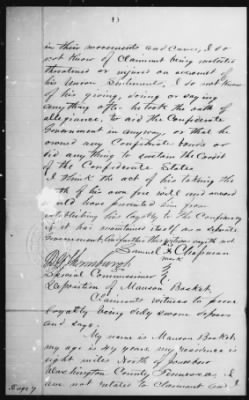 in their movements and cause, I do
not know of claimant being molested
threatened or injured on account of
his Union Sentiment, I do not know
of his giving, doing or saying
anything after he took the oath of
allegiance, to aid the Confederate
Government in anyway, or that he
owned any Confederate bonds or
did anything to sustain the Credit
of the Confederate States
I think the act of his taking the
oath of his own free will and accord
would have prevented him from
establishing his loyalty to the Confederacy
if it has maintained itself as a separate
Government, and further this
Samuel Chapman
mark
Special Commissioner
Deposition of Manson Basket
Claimants witness to prove
loyalty being duly sworn deposes
and says;
My name is Manson Basket
my age is 49 years, my residence is
eight miles North of Jonesboro
Washington County Tennessee, I
am not related to Claimant and I
Page 7